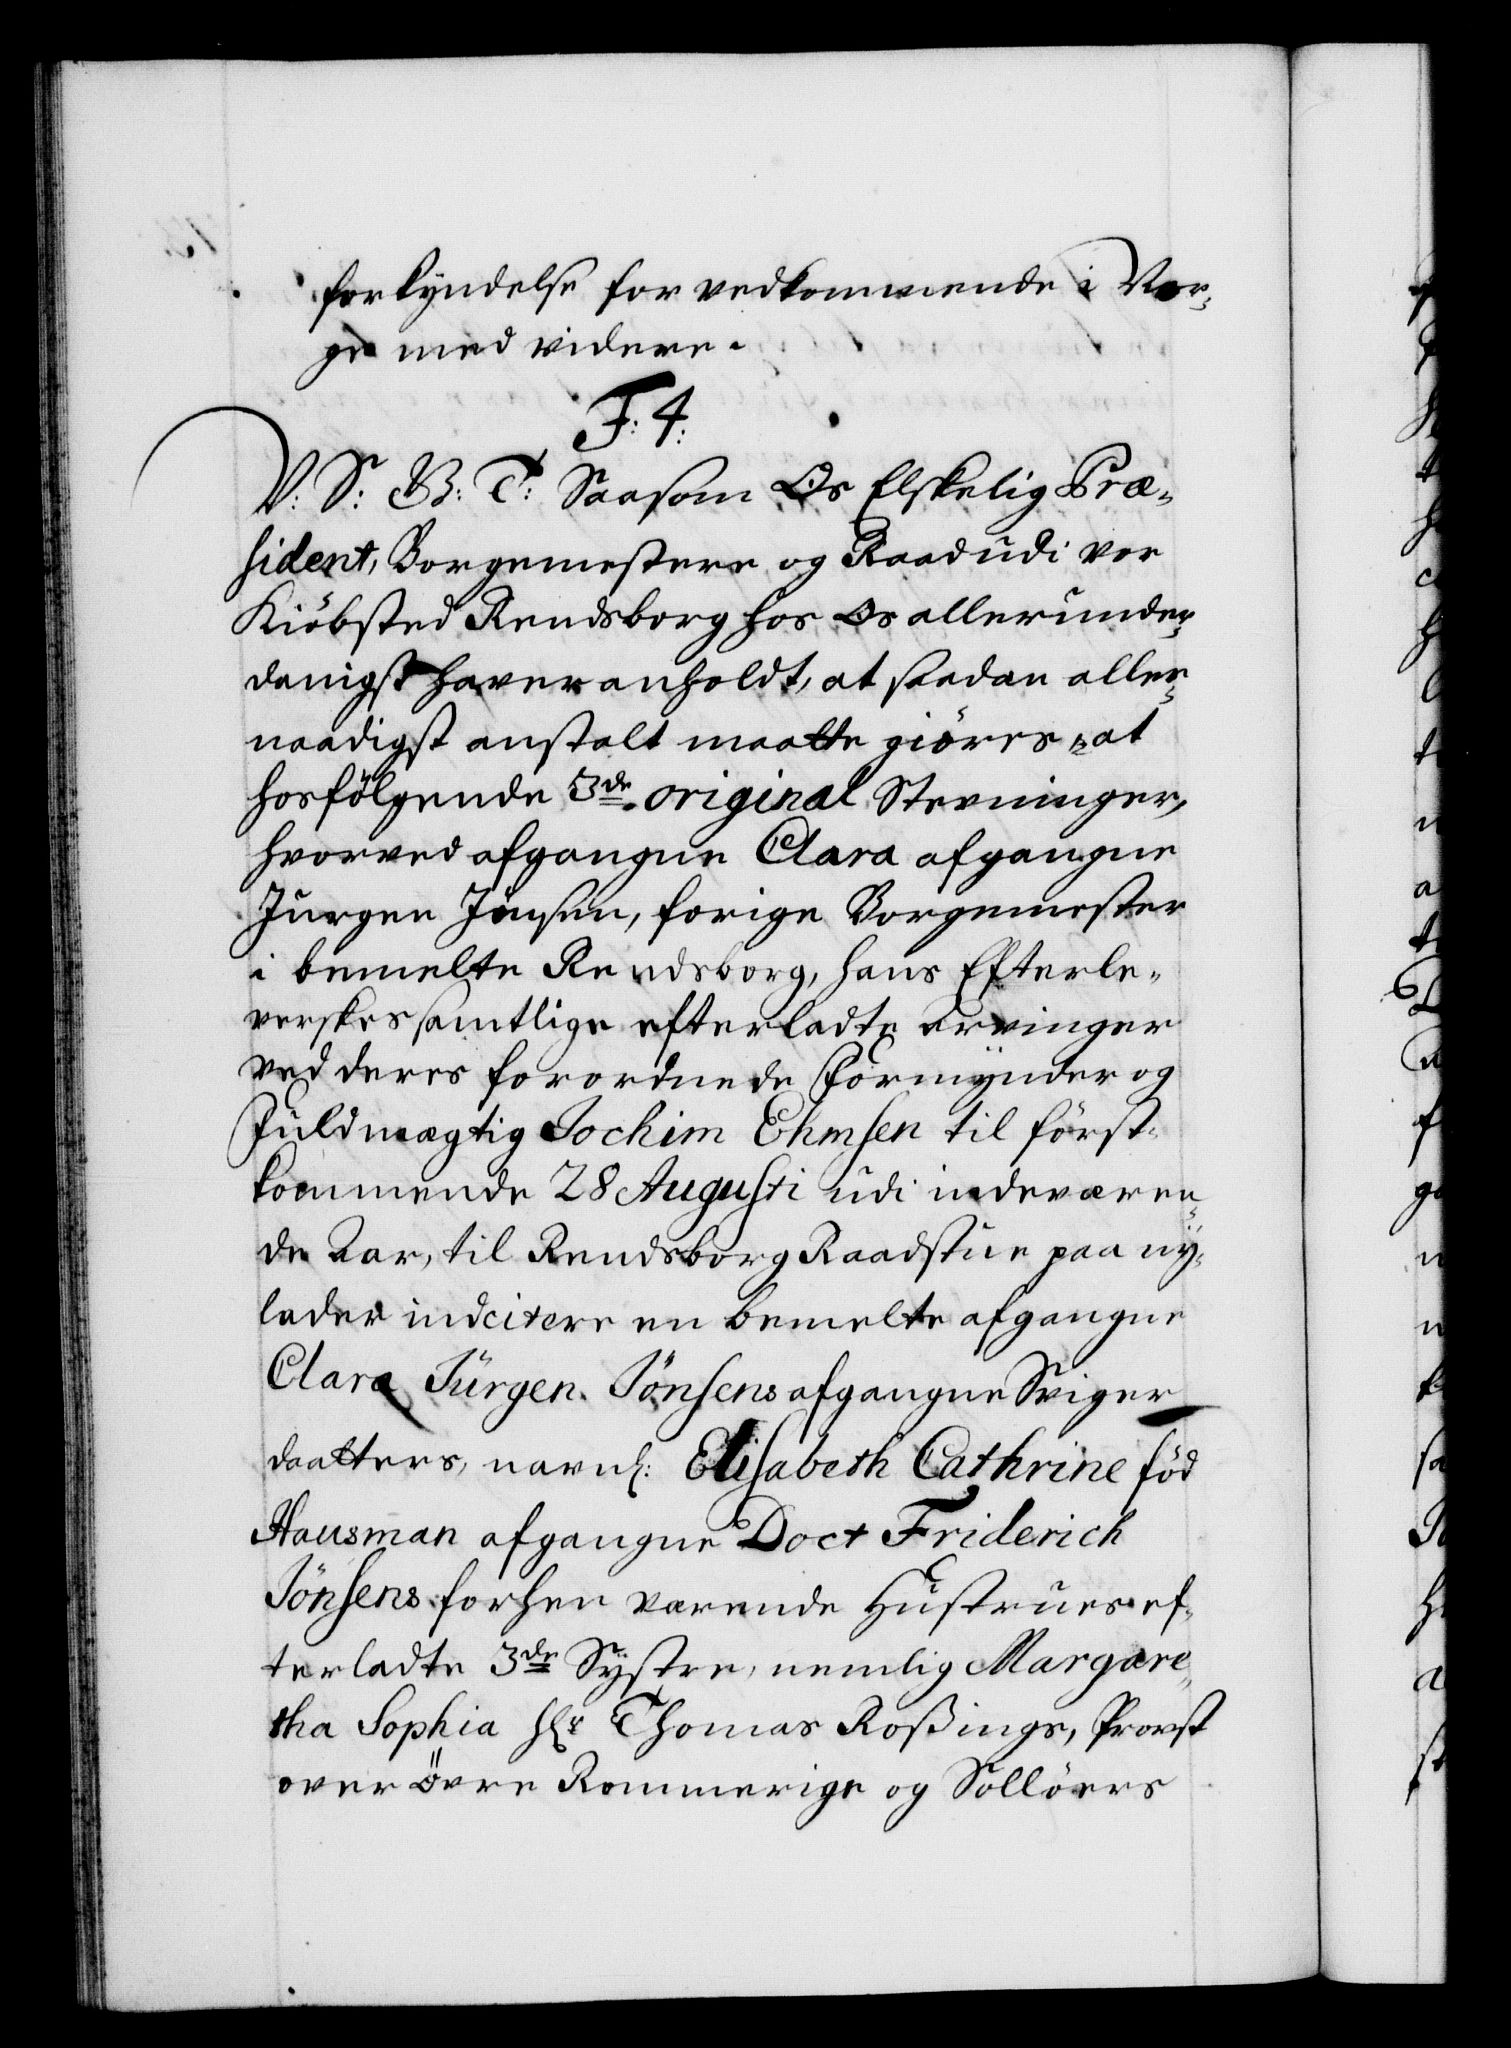 forkyndelse for vedkommende i Nor-
ge med videre.
F: 4:
V: S: B: T: Saasom Os Elskelig Præ-
sident, Borgemestere og Raad udi vor
Kiöbsted Rendsborg hos Os allerunder-
danigst haver anholdt, at saadan aller-
naadigst anstalt maatte giöres, at
hosfölgende 3de original Stevninger,
hvorved afgangne Clara afgangne
Jurgen Jönsen, forige Borgemester
i bemelte Rendsborg, hans Efterle-
verskes samtlige efterladte Arvinger
ved deres forordnede Formÿnder og
Fuldmægtig Jochim Ehmsen til först-
kommende 28 Augusti udi indeværen-
de Aar, til Rendsborg Raadstue paa nÿ
lader indcitere en bemelte afgangne
Clara Jürgen Jönsens afgangne Sviger
daatters, navnl: Elisabeth Cathrine föd
Hausman afgangne Doct Friderich
Jönsens forhen varende Hustrues ef-
terladte 3de Sÿstre, nemlig Margare-
tha Sophia Hr Thomas Roßings, Provst
over Övre Rommerige og Sollöers